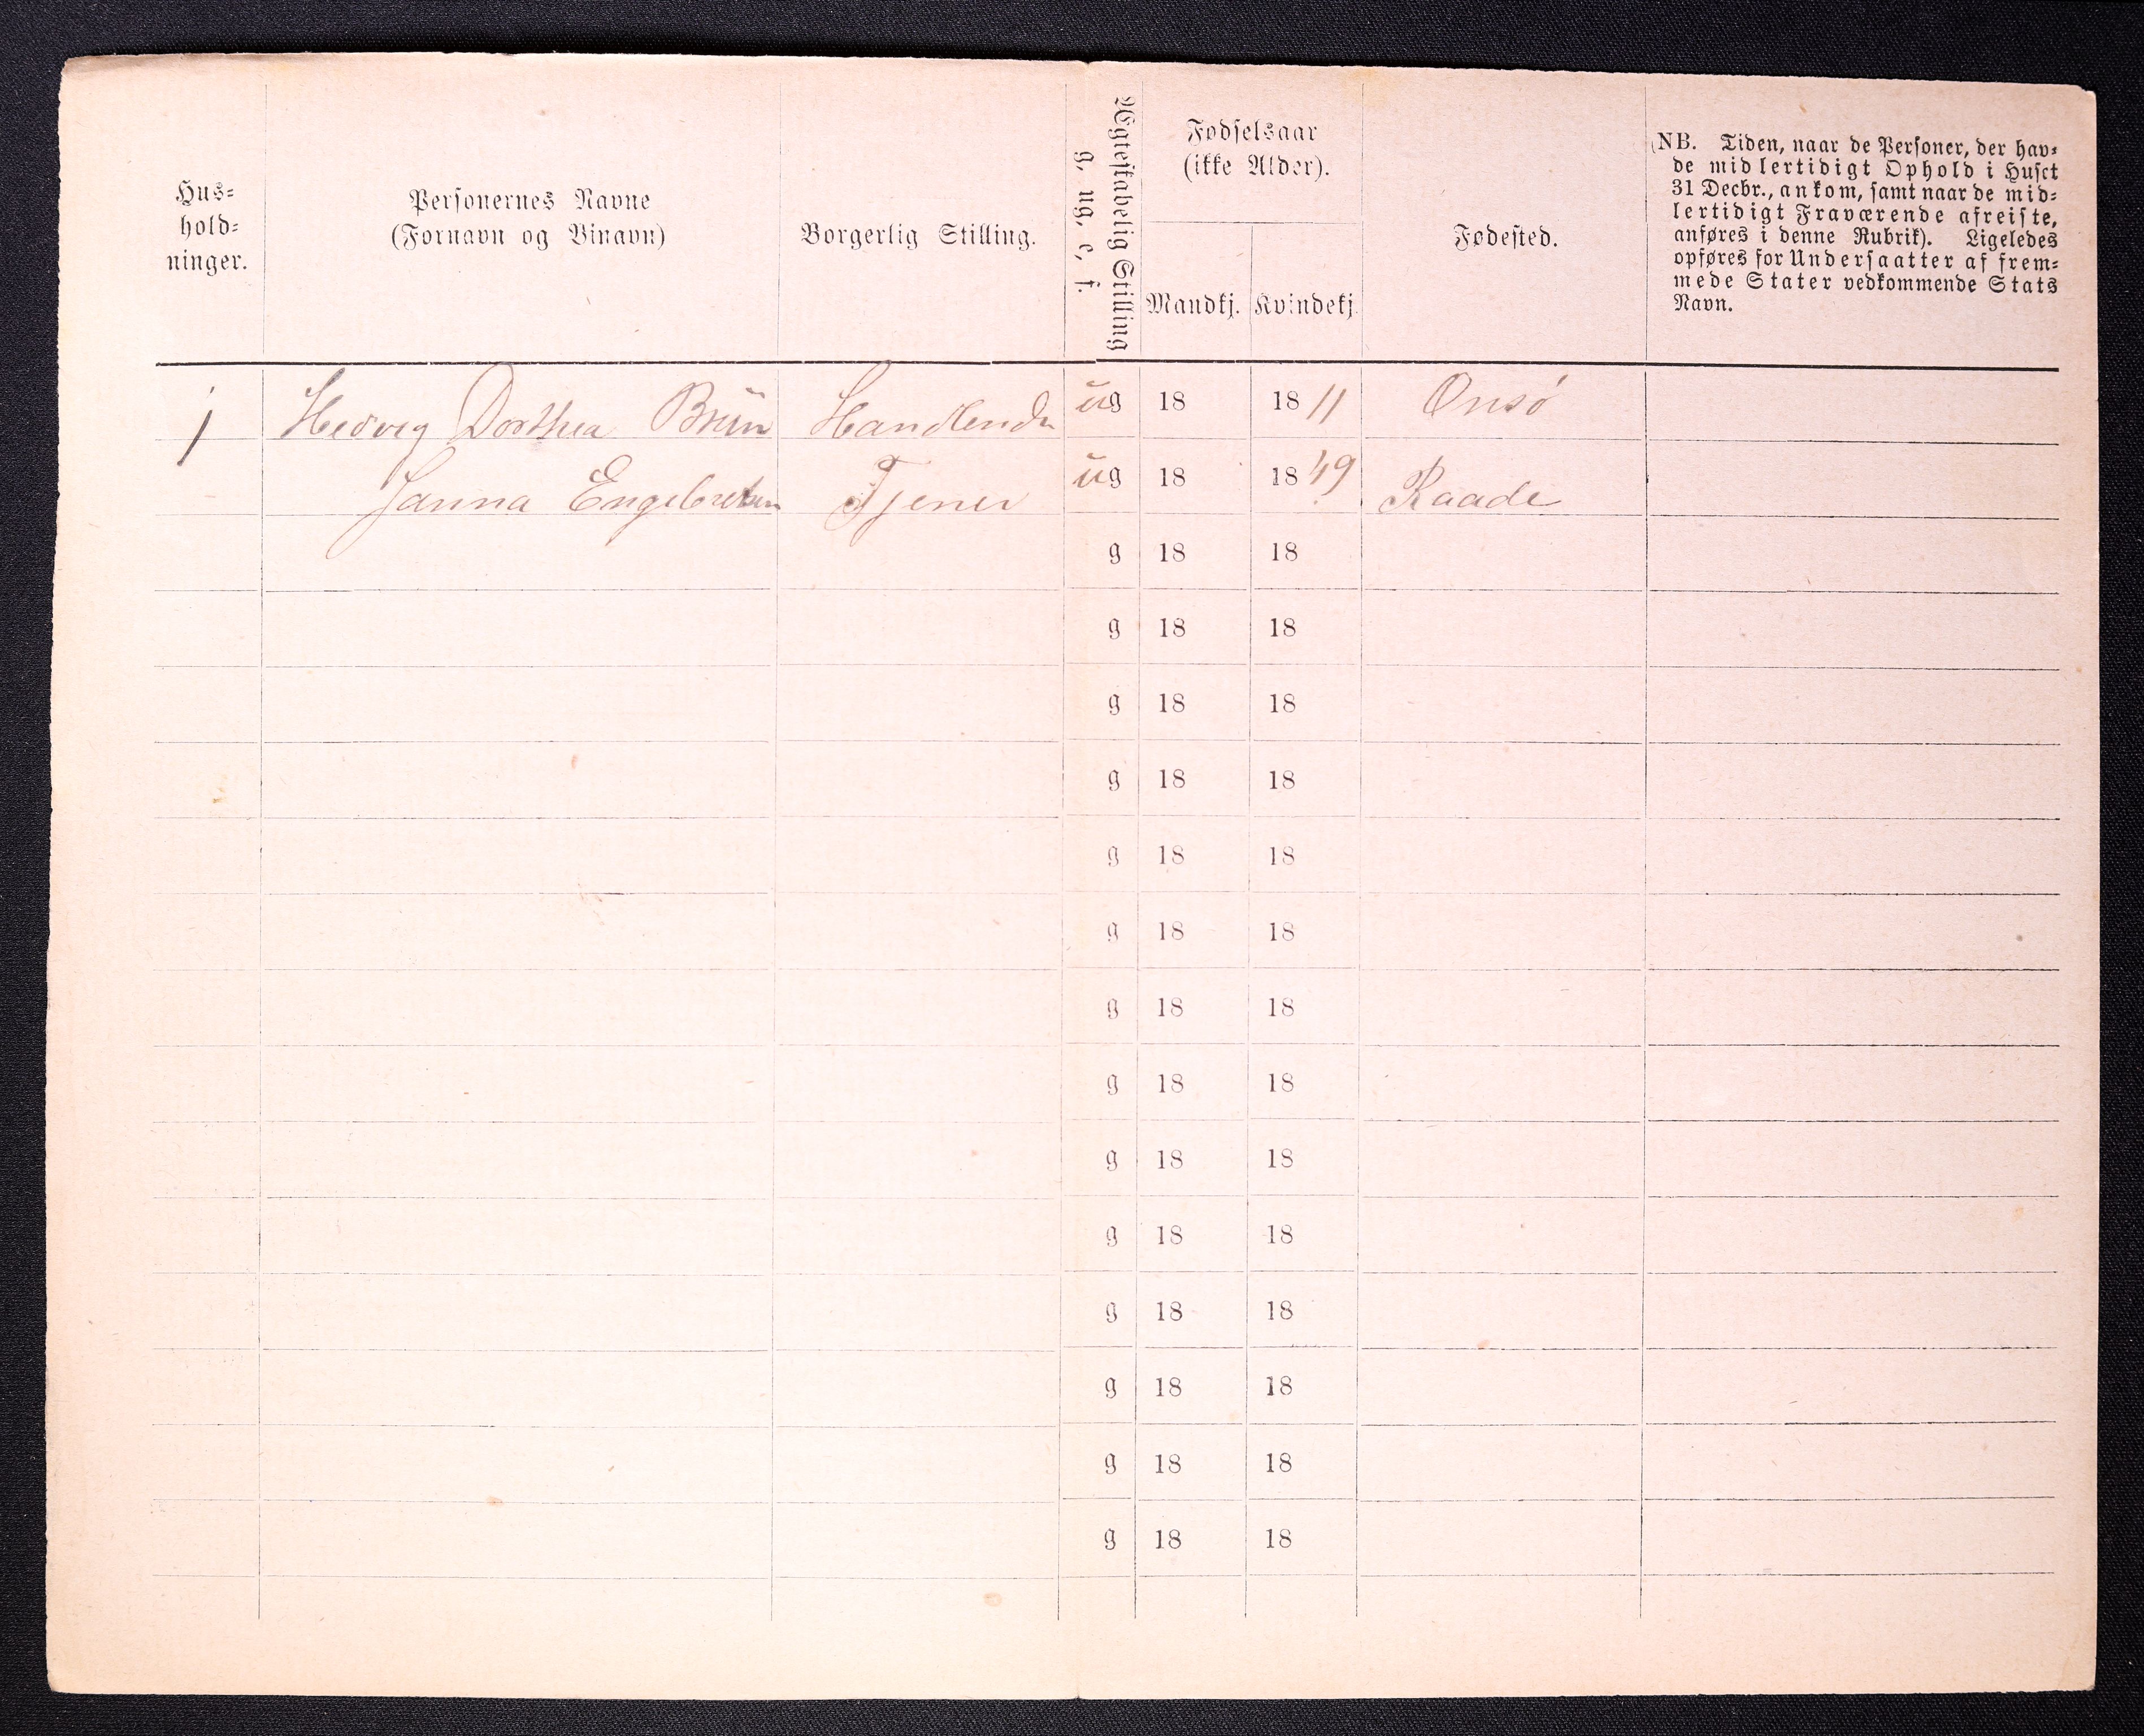 Hus-
hold-
ninger.
Personernes Navne
(Fornavn og Binavn)
Borgerlig Stilling.
Ægteskabelig Stilling
g, ug, e, f.
Fødselsaar
(ikke Alder).
Mandkj. Kvindekj.
Fødested.
(NB. Tiden, naar de Personer, der hav-
de midlertidigt Ophold i Huset
31 Decbr., ankom, samt naar de mid-
lertidigt Fraværende afreiste,
anføres i denne Rubrik). Ligeledes
opføres for Undersaatter af frem-
mede Stater vedkommende Stats
Navn.
1 Hedvig Dorthea Brün Handlende ug 18 1811 Onsø
Janna Engebretsen Tjener ug 18 1849 Raade
g 18 18
g 18 18
g 18 18
g 18 18
g 18 18
g 18 18
g 18 18
g 18 18
g 18 18
g 18 18
g 18 18
g 18 18
g 18 18
g 18 18